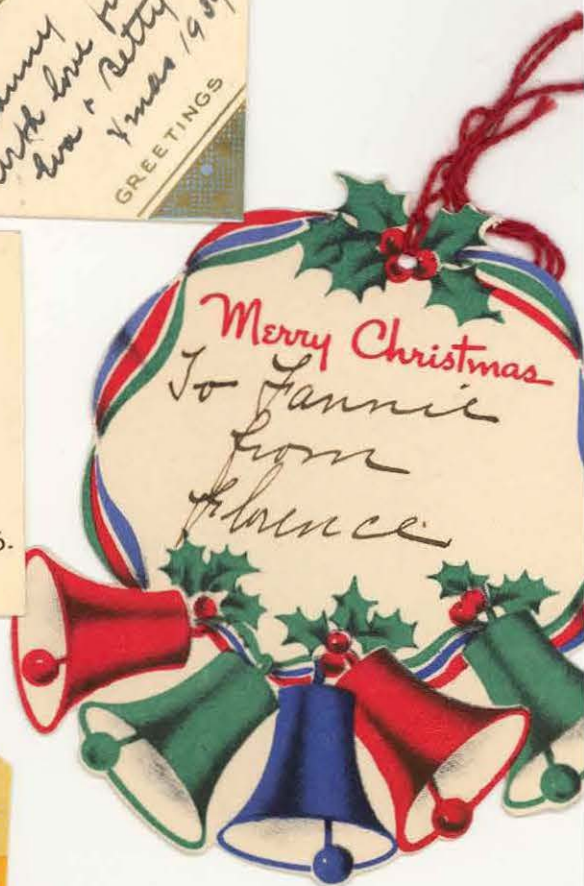 with love from
Eva + Betty
Xmas
GREETINGS
Merry Christmas
To Fannie
from
Florence